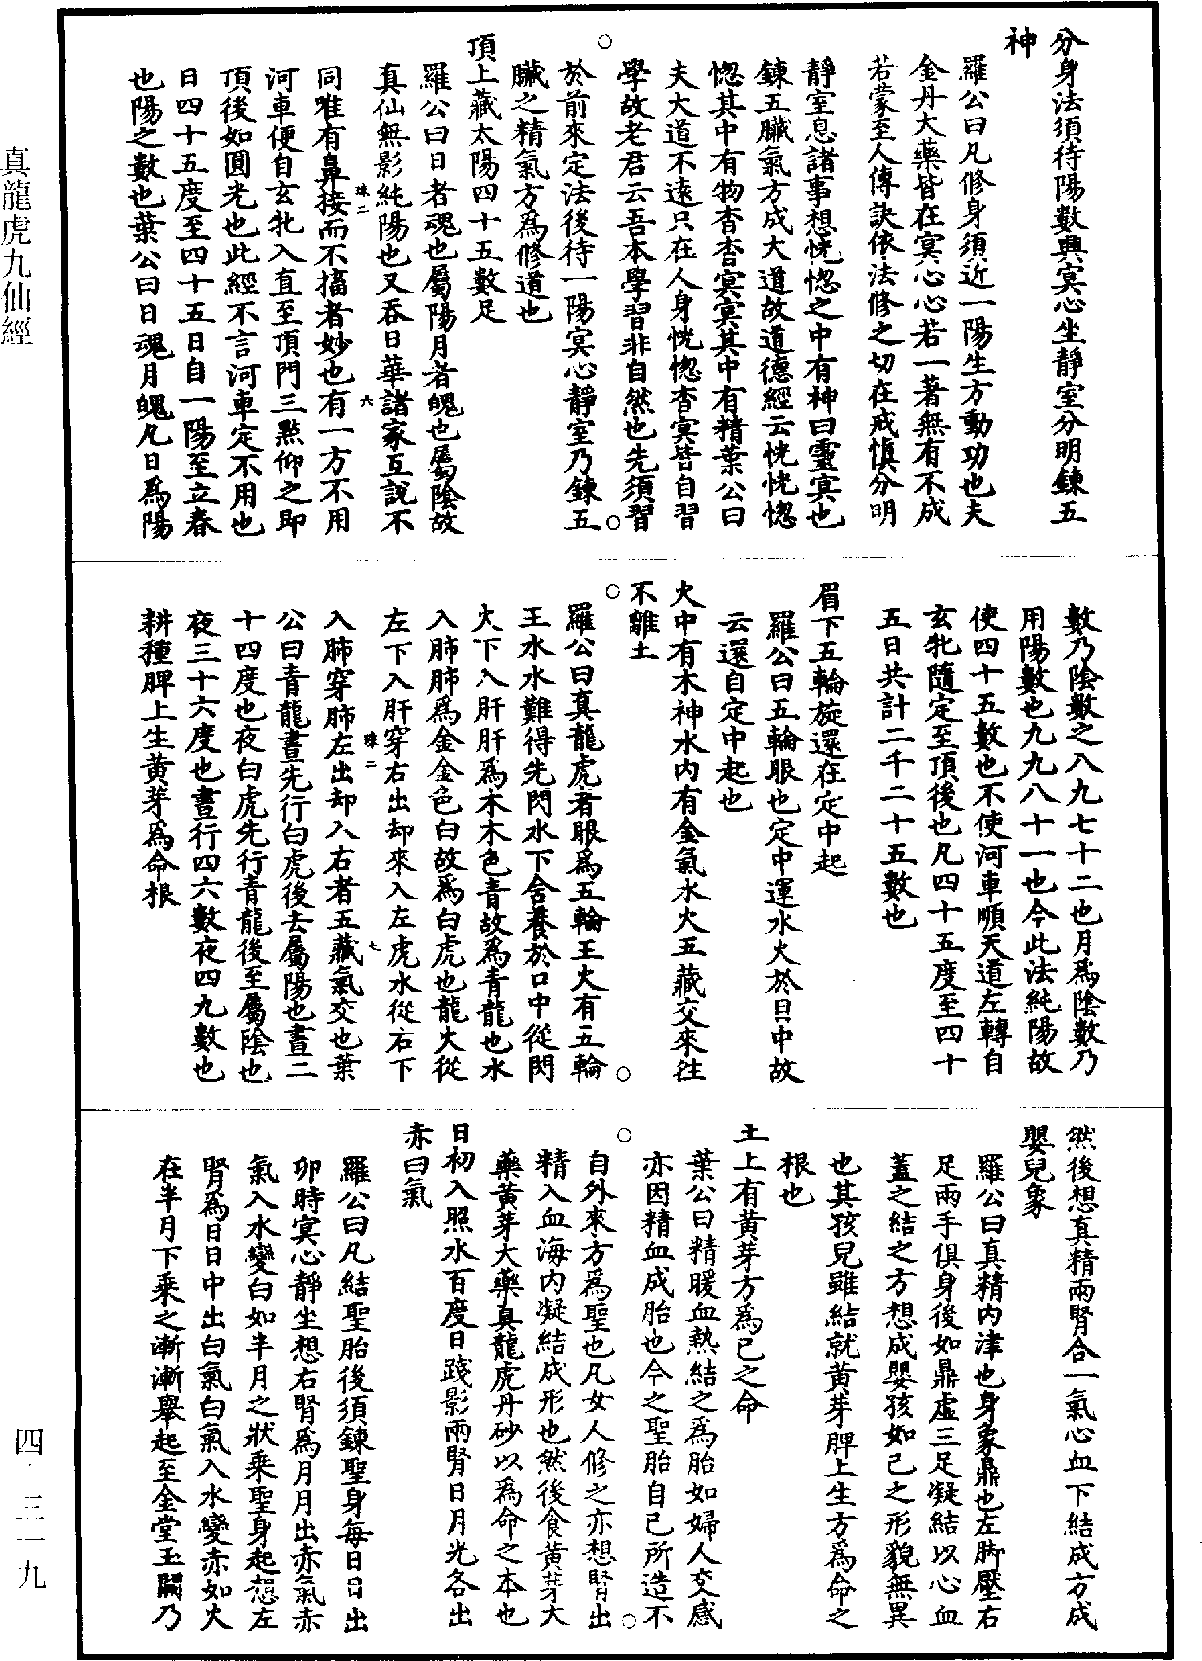 分身法須待陽數興冥心坐靜室分明鍊五
神
羅公曰凡修身須近一陽生方動功也夫
金丹大藥皆在冥心心若一著無有不成
若蒙至人傳訣依法修之切在戒慎分明
靜室息諸事想恍惚之中有神曰靈冥也
鍊五臟氣方成大道故道德經云恍恍惚
惚其中有物杳杳冥冥其中有精葉公曰
夫大道不遠只在人身恍惚杳冥皆自習
學故老君云吾本學習非自然也先須習
於前來定法後待一陽冥心靜室乃鍊五
臟之精氣方為修道也
頂上藏太陽四十五數足
羅公曰日者魂也屬陽月者魄也屬陰故
真仙無影純陽也又吞日華諸家互說不
同唯有鼻接而不搐者妙也有一方不用
河車便自玄牝入直至頂門三點仰之即
頂後如圓光也此經不言河車定不用也
日四十五度至四十五日自一陽至立春
也陽之數也葉公曰日魂月魄凡日為陽
數乃陰數之八九七十二也月為陰數乃
用陽數也九九八十一也今此法純陽故
使四十五數也不使河車順天道左轉自
玄牝隨定至頂後也凡四十五度至四十
五日共計二千二十五數也
眉下五輪旋還在定中起
羅公曰五輪眼也定中運水火於目中故
云還自定中起也
火中有木神水內有金氣水火五藏交來往
不離土
羅公曰真龍虎者眼為五輪王火有五輪
王水水難得先閃水下含養於口中從閃
火下入肝肝為木木色青故為青龍也水
入肺肺為金金色白故為白虎也龍火從
左下入肝穿右出却來入左虎水從右下
入肺穿肺左出却入右者五藏氣交也葉
公曰青龍晝先行白虎後去屬陽也晝二
十四度也夜白虎先行青龍後至屬陰也
夜三十六度也晝行四六數夜四九數也
耕種脾上生黄芽為命根
然後想真精兩腎合一氣心血下結成方成
嬰兒象
羅公曰真精內津也身象鼎也左脚壓右
足兩手俱身後如鼎虛三足凝結以心血
蓋之結之方想成嬰孩如己之形貌無異
也其孩兒雖結就黄芽脾上生方為命之
根也
土上有黄芽方為已之命
葉公曰精暖血熱結之為胎如婦人交感
亦因精血成胎也今之聖胎自己所造不
自外來方為聖也凡女人修之亦想腎出
精入血海內凝結成形也然後食黄芽大
藥黄芽大藥真龍虎丹砂以為命之本也
日初入照水百度日踐影兩腎日月光各出
赤白氣
羅公曰凡結聖胎後須鍊聖身每日日出
卯時冥心靜坐想右腎為月月出赤氣赤
氣入水變白如半月之狀乘聖身起想左
腎為日日中出白氣白氣入水變赤如火
在半月下乘之漸漸舉起至金堂玉闕乃
真龍虎九仙經
四·三一九
珠二
六
珠二
七